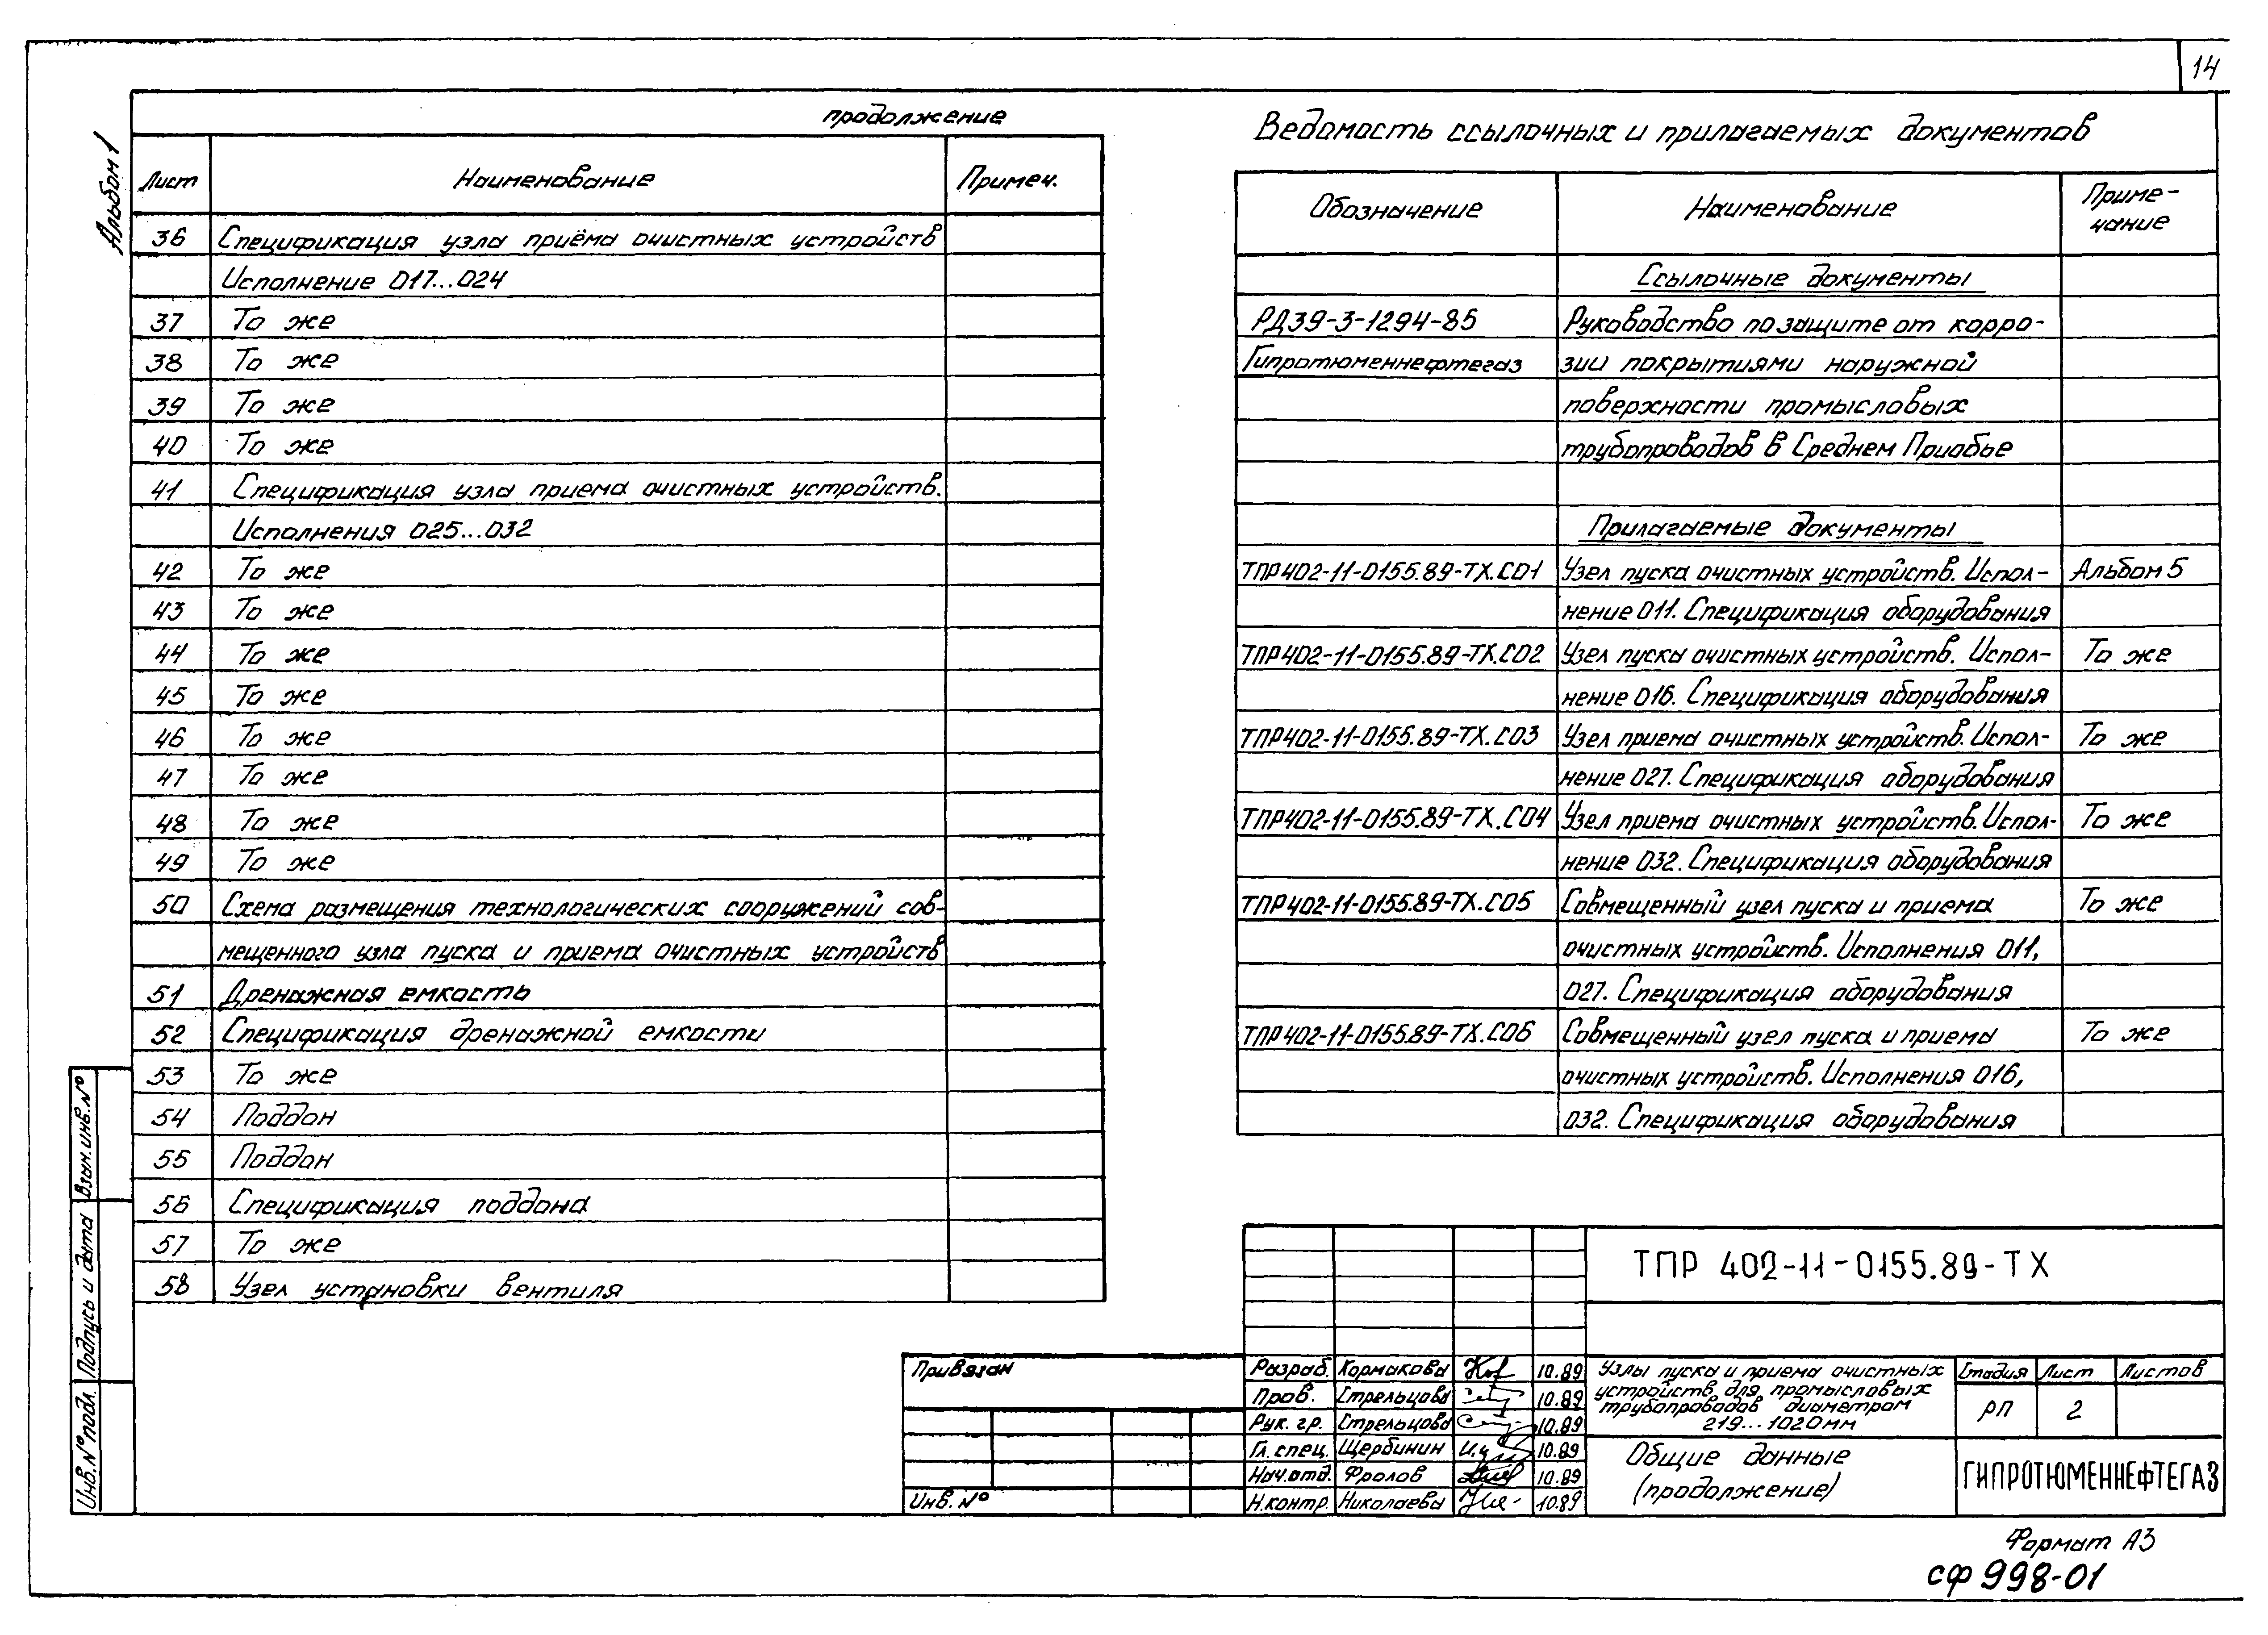 14
Альбом 1
продолжение
Лист Наименование Примеч.
36 Спецификация узла приёма очистных устройств
Исполнение 017...024
37 То же
38 То же
39 То же
40 То же
41 Спецификация узла приема очистных устройств.
Исполнения 025...032
42 То же
43 То же
44 То же
45 То же
46 То же
47 То же
48 То же
49 То же
50 Схема размещения технологических сооружений сов-
мещенного узла пуска и приема очистных устройств
51 Дренажная емкость
52 Спецификация дренажной емкости
53 То же
54 Поддон
55 Поддон
56 Спецификация поддона
57 То же
58 Узел установки вентиля
Ведомость ссылочных и прилагаемых документов
Обозначение Наименование Приме-
чание
Ссылочные документы
РД39-3-1294-85 Руководство по защите от корро-
Гипротюменнефтегаз зии покрытиями наружной
поверхности промысловых
трубопроводов в Среднем Приобье
Прилагаемые документы
ТПР402-11-0155.89-ТХ.СО1 Узел пуска очистных устройств. Испол- Альбом 5
нение 011. Спецификация оборудования
ТПР402-11-0155.89-ТХ.СО2 Узел пуска очистных устройств. Испол- То же
нение 016. Спецификация оборудования
ТПР402-11-0155.89-ТХ.СО3 Узел приема очистных устройств. Испол- То же
нение 027. Спецификация оборудования
ТПР402-11-0155.89-ТХ.СО4 Узел приема очистных устройств. Испол- То же
нение 032. Спецификация оборудования
ТПР402-11-0155.89-ТХ.СО5 Совмещенный узел пуска и приема То же
очистных устройств. Исполнения 011,
027. Спецификация оборудования
ТПР402-11-0155.89-ТХ.СО6 Совмещенный узел пуска и приема То же
очистных устройств. Исполнения 016,
032. Спецификация оборудования
Взам.инв.№
Подпусь и дата
Инв.№подл.
Привязан
Инв.№
ТПР 402-11-0155.89-ТХ
Разраб. Кормакова 10.89
Пров. Стрельцова 10.89
Рук. гр. Стрельцова 10.89
Гл. спец. Щербинин 10.89
Нач.отд. Фролов 10.89
Н.контр. Николаева 10.89
Узлы пуска и приема очистных
устройств для промысловых
трубопроводов диаметром
219...1020мм
Стадия Лист Листов
РП 2
Общие данные
(продолжение)
ГИПРОТЮМЕННЕФТЕГАЗ
Формат А3
сф 998-01